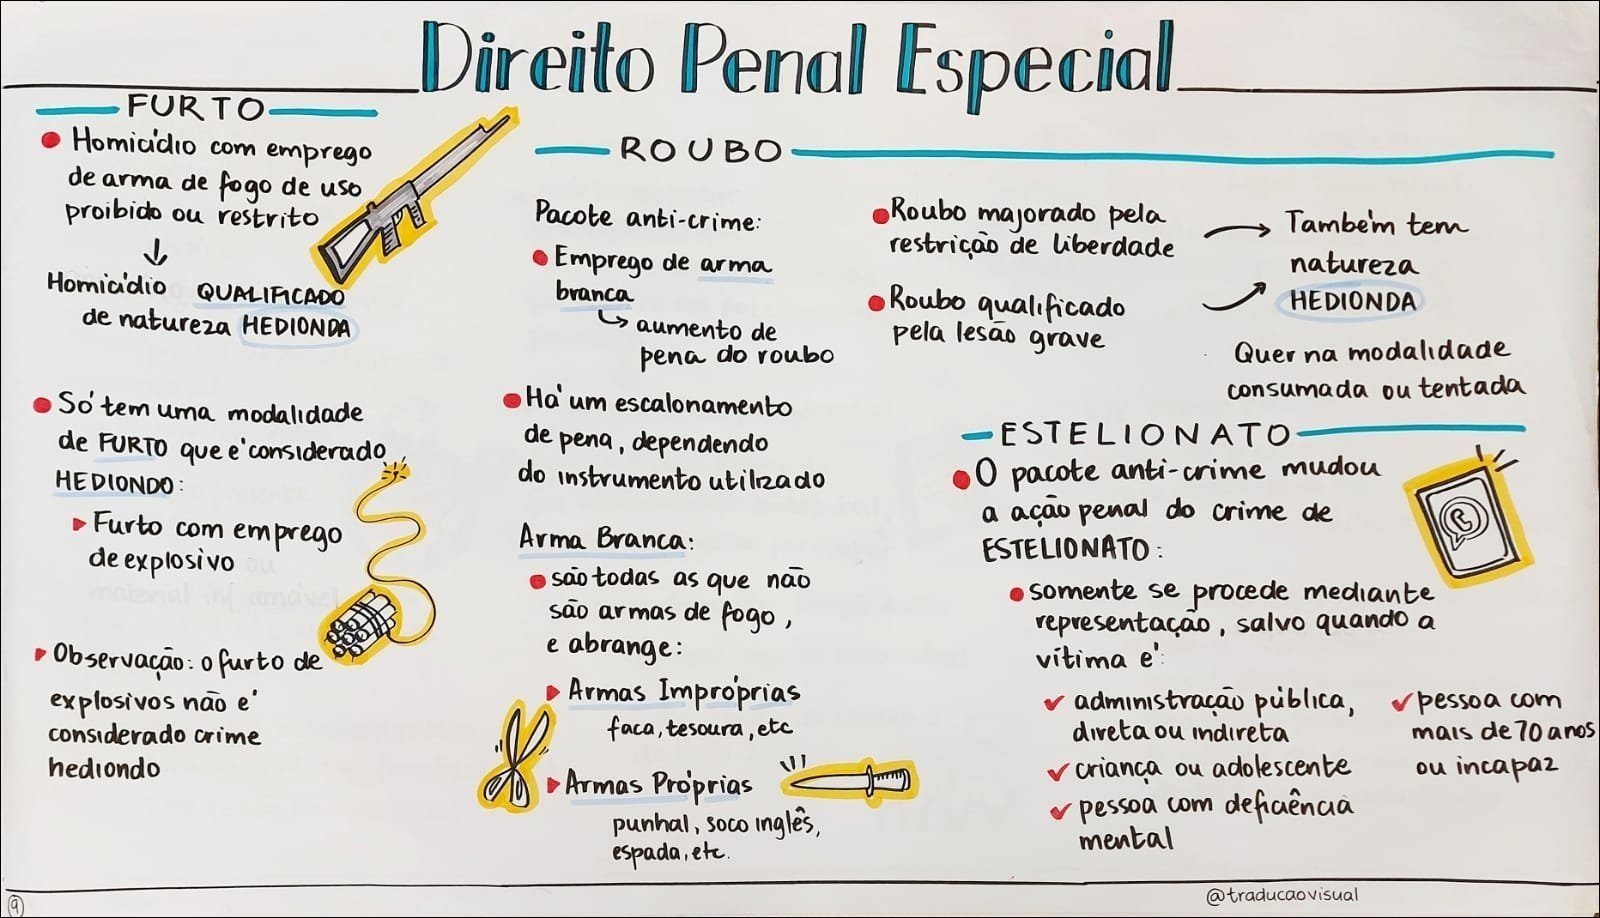 Direito Penal Especial
FURTO
Homicídio com emprego
de arma de fogo de uso
proibido ou restrito
Homicídio QUALIFICADO
de natureza HEDIONDA
Só tem uma modalidade
de FURTO que é considerado
HEDIONDO:
Furto com emprego
de explosivo
Observação: o furto de
explosivos não é
considerado crime
hediondo
ROUBO
Pacote anti-crime:
Emprego de arma
branca
aumento de
pena do roubo
Há um escalonamento
de pena, dependendo
do instrumento utilizado
Arma Branca:
são todas as que não
são armas de fogo,
e abrange:
Armas Impróprias
faca, tesoura, etc
Armas Próprias
punhal, soco inglês,
espada, etc.
Roubo majorado pela
restrição de liberdade
Roubo qualificado
pela lesão grave
Também tem
natureza
HEDIONDA
Quer na modalidade
consumada ou tentada
ESTELIONATO
O pacote anti-crime mudou
a ação penal do crime de
ESTELIONATO:
somente se procede mediante
representação, salvo quando a
vítima é:
administração pública,
direta ou indireta
criança ou adolescente
pessoa com deficiência
mental
pessoa com
mais de 70 anos
ou incapaz
9
@traducaovisual